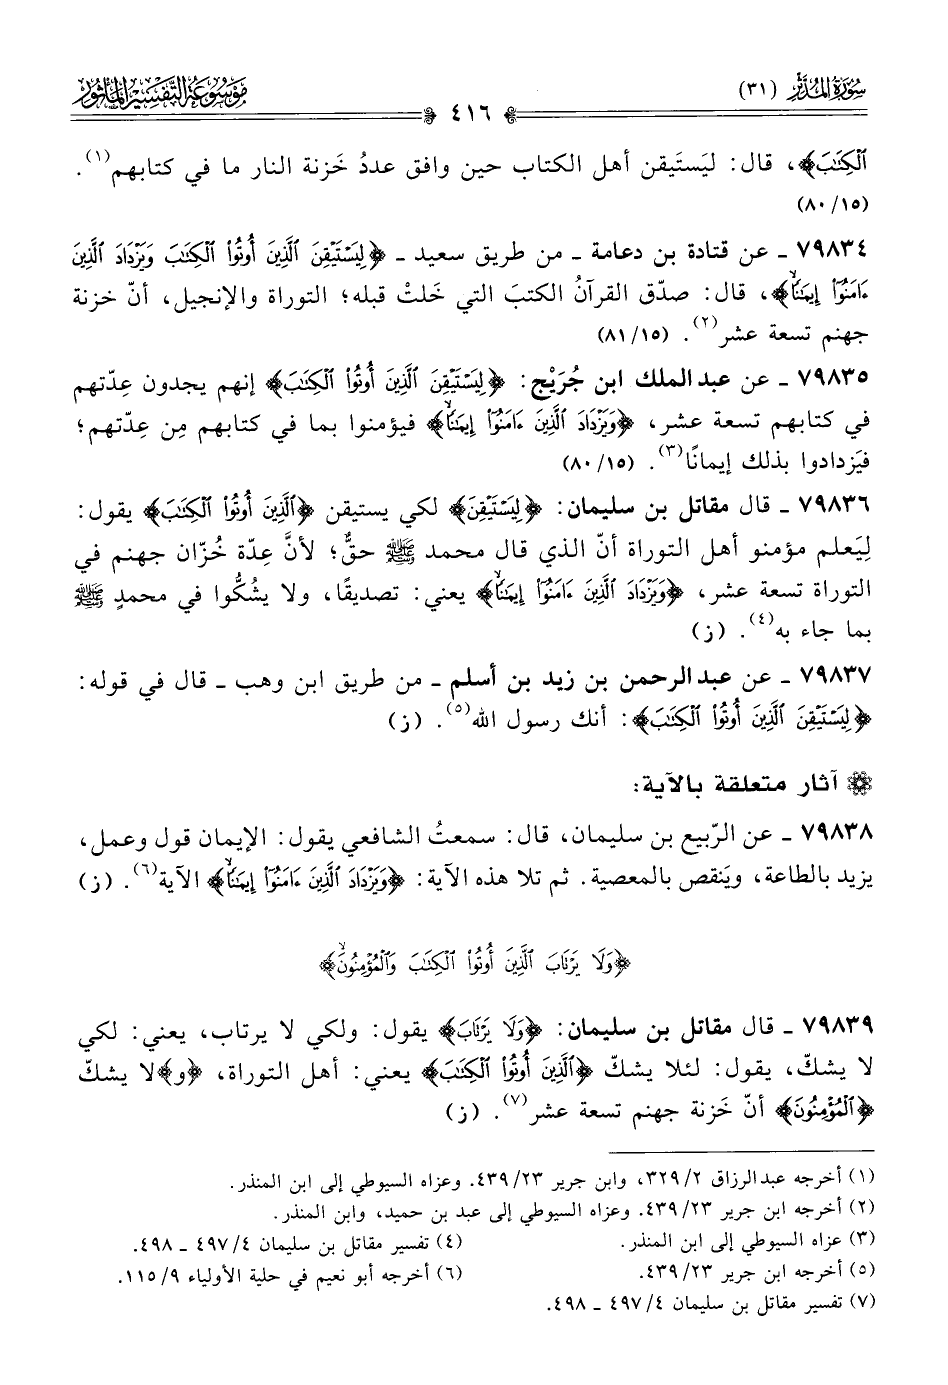 سُورَةُ المُدَّثِّرِ (٣١)
٤١٦
مَوْسُوعَةُ التَّفْسِيرِ المَأْثُورِ
ٱلْكِتَٰبَ﴾، قال: ليَستَيقن أهل الكتاب حين وافق عددُ خَزنة النار ما في كتابهم(١).
(٨٠/١٥)
٧٩٨٣٤ ـ عن قتادة بن دعامة ـ من طريق سعيد ـ ﴿لِيَسْتَيْقِنَ ٱلَّذِينَ أُوتُوا۟ ٱلْكِتَٰبَ وَيَزْدَادَ ٱلَّذِينَ
ءَامَنُوٓا۟ إِيمَٰنًاۙ﴾، قال: صدّق القرآنُ الكتبَ التي خَلتْ قبله؛ التوراة والإنجيل، أنّ خزنة
جهنم تسعة عشر(٢). (٨١/١٥)
٧٩٨٣٥ ـ عن عبدالملك ابن جُرَيْج: ﴿لِيَسْتَيْقِنَ ٱلَّذِينَ أُوتُوا۟ ٱلْكِتَٰبَ﴾ إنهم يجدون عِدّتهم
في كتابهم تسعة عشر، ﴿وَيَزْدَادَ ٱلَّذِينَ ءَامَنُوٓا۟ إِيمَٰنًاۙ﴾ فيؤمنوا بما في كتابهم مِن عِدّتهم؛
فيَزدادوا بذلك إيمانًا(٣). (٨٠/١٥)
٧٩٨٣٦ ـ قال مقاتل بن سليمان: ﴿لِيَسْتَيْقِنَ﴾ لكي يستيقن ﴿ٱلَّذِينَ أُوتُوا۟ ٱلْكِتَٰبَ﴾ يقول:
لِيَعلم مؤمنو أهل التوراة أنّ الذي قال محمد ﷺ حقٌّ؛ لأنَّ عِدّة خُزّان جهنم في
التوراة تسعة عشر، ﴿وَيَزْدَادَ ٱلَّذِينَ ءَامَنُوٓا۟ إِيمَٰنًاۙ﴾ يعني: تصديقًا، ولا يشُكُّوا في محمدٍ ﷺ
بما جاء به(٤). (ز)
٧٩٨٣٧ ـ عن عبدالرحمن بن زيد بن أسلم ـ من طريق ابن وهب ـ قال في قوله:
﴿لِيَسْتَيْقِنَ ٱلَّذِينَ أُوتُوا۟ ٱلْكِتَٰبَ﴾: أنك رسول الله(٥). (ز)
آثار متعلقة بالآية:
٧٩٨٣٨ ـ عن الرّبيع بن سليمان، قال: سمعتُ الشافعي يقول: الإيمان قول وعمل،
يزيد بالطاعة، ويَنقص بالمعصية. ثم تلا هذه الآية: ﴿وَيَزْدَادَ ٱلَّذِينَ ءَامَنُوٓا۟ إِيمَٰنًاۙ﴾ الآية(٦). (ز)
﴿وَلَا يَرْتَابَ ٱلَّذِينَ أُوتُوا۟ ٱلْكِتَٰبَ وَٱلْمُؤْمِنُونَۙ﴾
٧٩٨٣٩ ـ قال مقاتل بن سليمان: ﴿وَلَا يَرْتَابَ﴾ يقول: ولكي لا يرتاب، يعني: لكي
لا يشكّ، يقول: لئلا يشكّ ﴿ٱلَّذِينَ أُوتُوا۟ ٱلْكِتَٰبَ﴾ يعني: أهل التوراة، ﴿و﴾لا يشكّ
﴿ٱلْمُؤْمِنُونَ﴾ أنّ خَزنة جهنم تسعة عشر(٧). (ز)
(١) أخرجه عبدالرزاق ٢/ ٣٢٩، وابن جرير ٢٣/ ٤٣٩. وعزاه السيوطي إلى ابن المنذر.
(٢) أخرجه ابن جرير ٢٣/ ٤٣٩. وعزاه السيوطي إلى عبد بن حميد، وابن المنذر.
(٣) عزاه السيوطي إلى ابن المنذر. (٤) تفسير مقاتل بن سليمان ٤/ ٤٩٧ ـ ٤٩٨.
(٥) أخرجه ابن جرير ٢٣/ ٤٣٩. (٦) أخرجه أبو نعيم في حلية الأولياء ٩/ ١١٥.
(٧) تفسير مقاتل بن سليمان ٤/ ٤٩٧ ـ ٤٩٨.